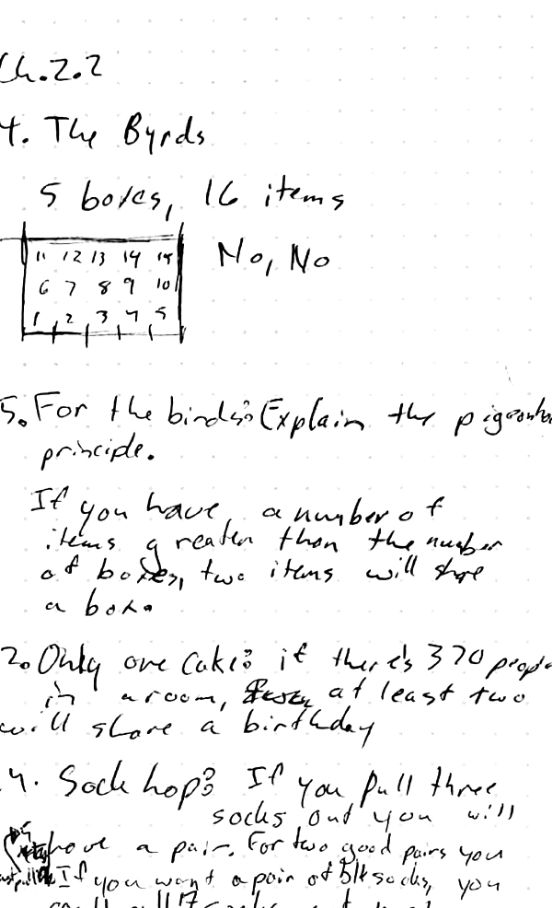 Ch.2.2
4. The Byrds
5 boxes, 16 items
11 12 13 14 15 No, No
6 7 8 9 10
1 2 3 4 5
5. For the birds: Explain the pigeonho
principle.
If you have a number of
items greater than the number
of boxes, two items will share
a box.
2. Only one cake: if there's 370 people
in a room, at least two
will share a birthday
4. Sock hop: If you pull three
socks out you will
have a pair. For two good pairs you
If you want a pair of blk socks, you